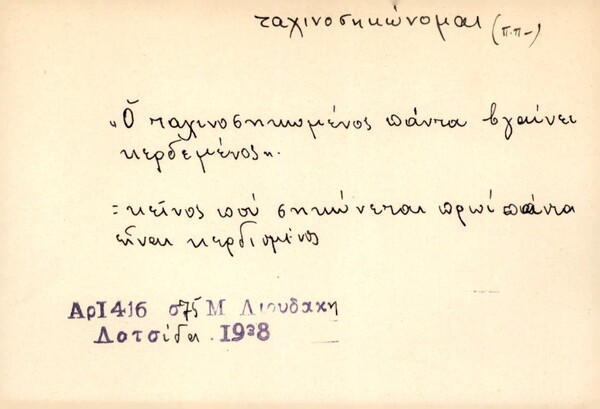 ταχινοσηκώνομαι (π.π-)
"Ὁ ταχινοσηκωμένος πάντα βγαίνει
κερδεμένος".
= κεῖνος πού σηκώνεται πρωί πάντα
εἶναι κερδισμένος
Αρ1416 σ75 Μ Λιουδακη
Λοτσίδα. 1938